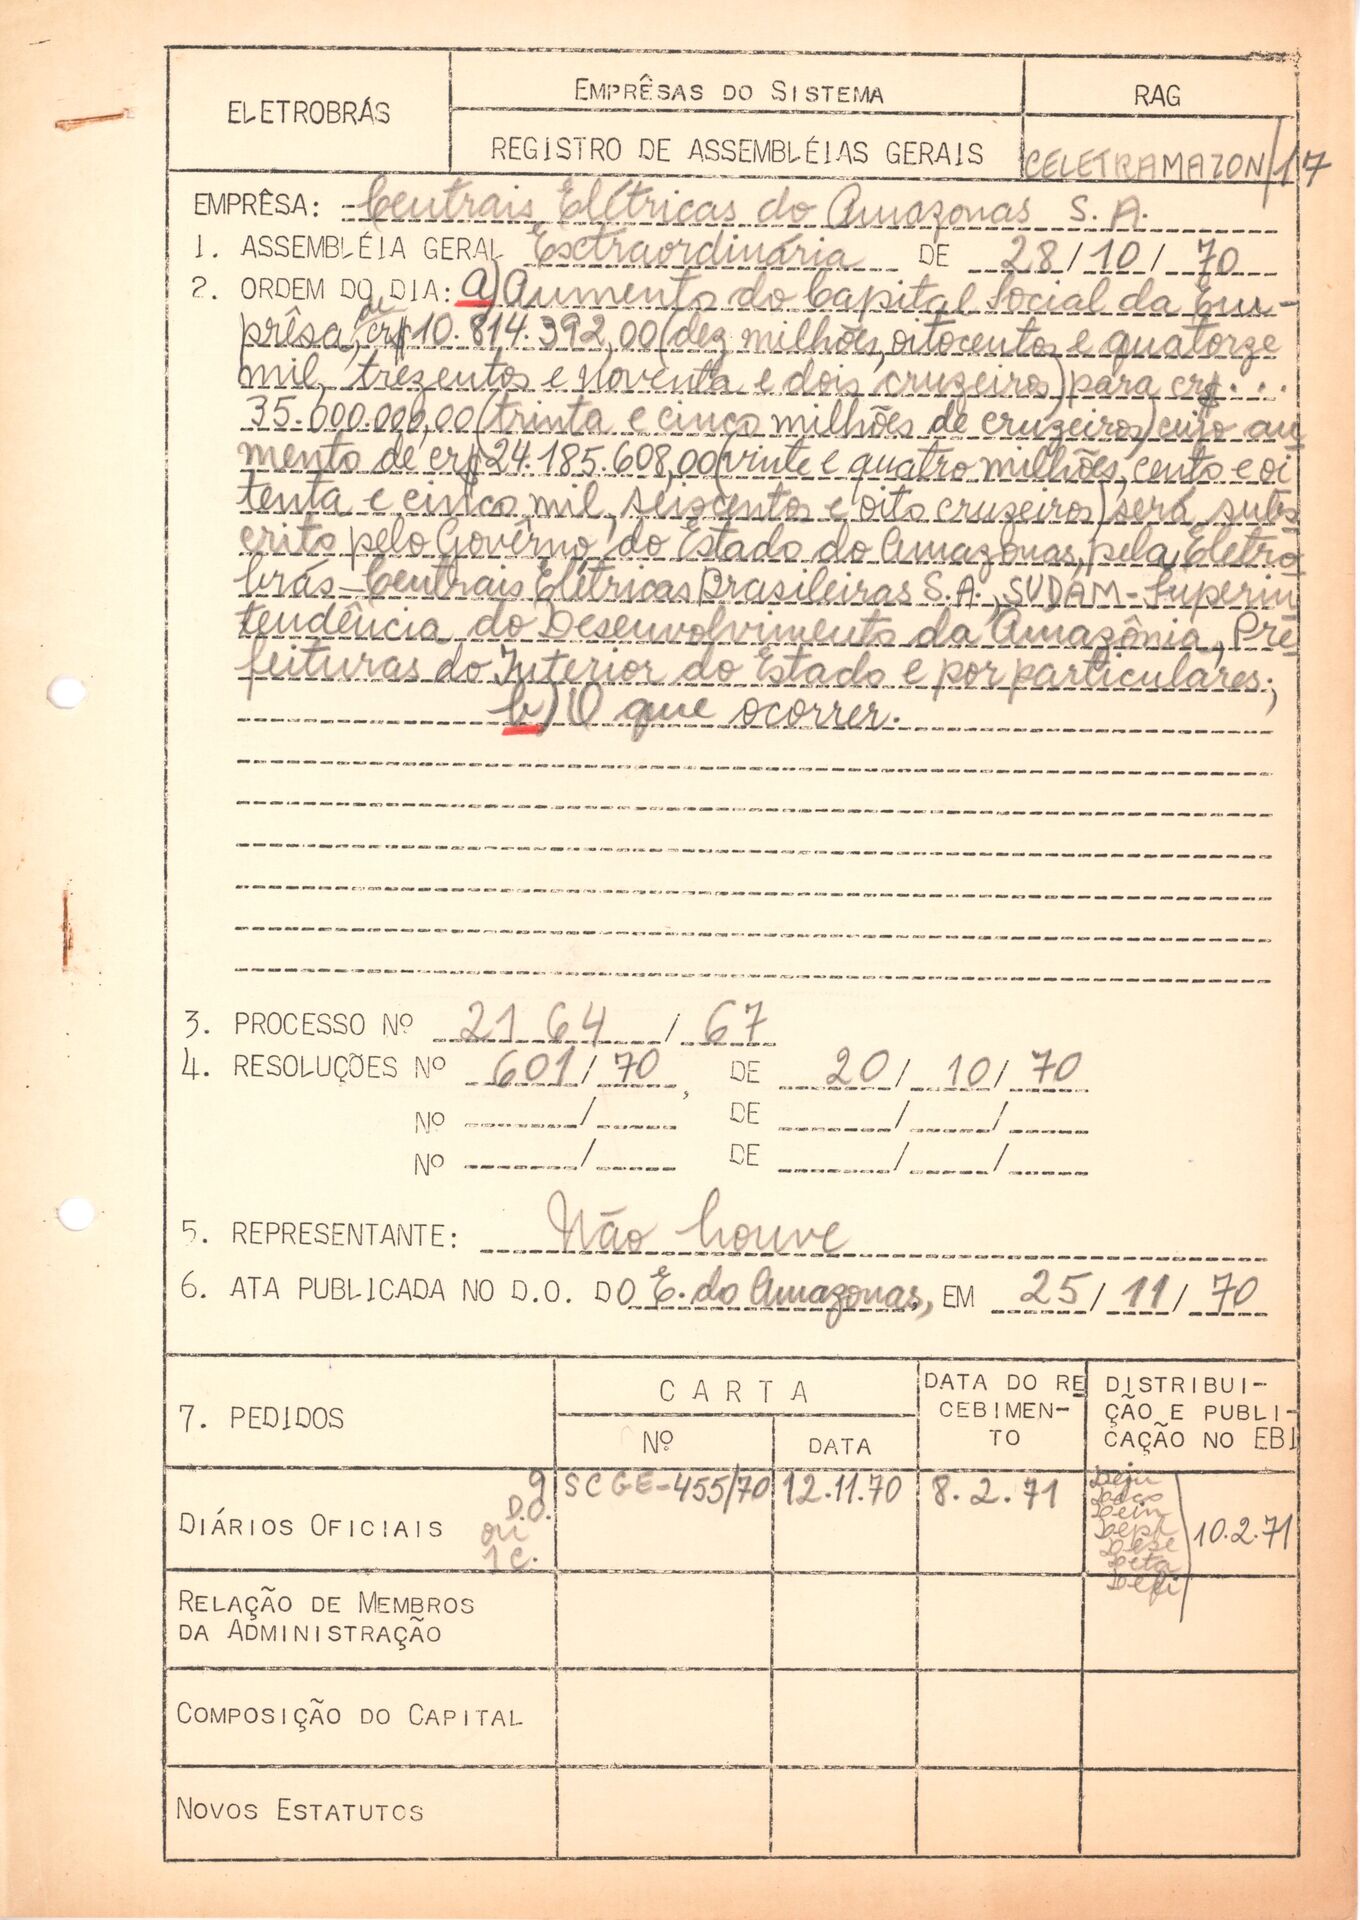 ELETROBRÁS
EMPRÊSAS DO SISTEMA
RAG
REGISTRO DE ASSEMBLÉIAS GERAIS
CELETRAMAZON/17
EMPRÊSA: Centrais Elétricas do Amazonas S.A.
1. ASSEMBLÉIA GERAL Extraordinária DE 28/10/70
2. ORDEM DO DIA: a) Aumento do Capital Social da Em-
prêsa, de cr$ 10.814.392,00 (dez milhões, oitocentos e quatorze
mil, trezentos e noventa e dois cruzeiros) para cr$...
35.000.000,00 (trinta e cinco milhões de cruzeiros) cujo au
mento de cr$ 24.185.608,00 (vinte e quatro milhões, cento e oi
tenta e cinco mil, seiscentos e oito cruzeiros) será subs
crito pelo Govêrno do Estado do Amazonas, pela Eletro
brás - Centrais Elétricas Brasileiras S.A., SUDAM - Superin
tendência do Desenvolvimento da Amazônia, Pre
feituras do Interior do Estado e por particulares;
b) O que ocorrer.
3. PROCESSO Nº 2164 / 67
4. RESOLUÇÕES Nº 601/70, DE 20/10/70
Nº / DE / /
Nº / DE / /
5. REPRESENTANTE: Não houve
6. ATA PUBLICADA NO D.O. DO E. do Amazonas, EM 25/11/70
7. PEDIDOS
CARTA
Nº
DATA
DATA DO RE
CEBIMEN-
TO
DISTRIBUI-
ÇÃO E PUBLI-
CAÇÃO NO EBI
DIÁRIOS OFICIAIS
9
D.O.
ou
1 c.
SCGE-455/70
12.11.70
8.2.71
Deju
Dein
Depl
Dese
Deta
Defi
10.2.71
RELAÇÃO DE MEMBROS
DA ADMINISTRAÇÃO
COMPOSIÇÃO DO CAPITAL
NOVOS ESTATUTOS